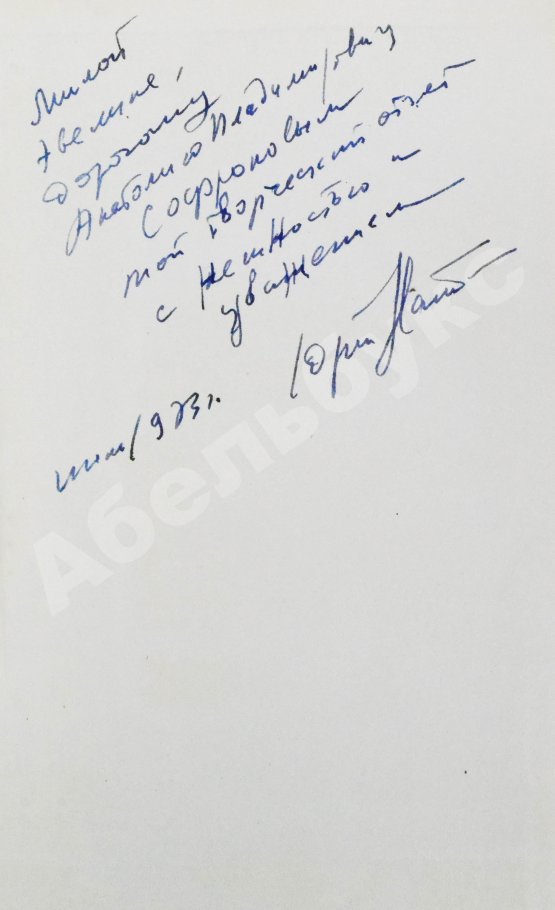 Милой
Эвелине,
Дорогому
Анатолию Владимировичу
Софроновым
мой творческий отчет
с нежностью и
уважением
Юрий
1973 г.
Абельбукс